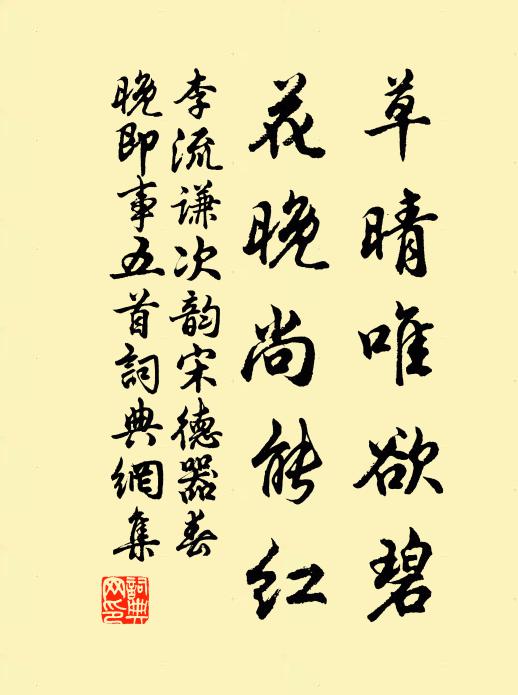 草晴唯欲碧
花晚尚能红
李流谦次韵宋德器春
晚即事五首詞典網集
詞典
网印